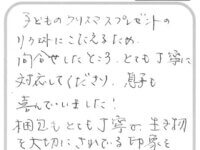 子どものクリスマスプレゼントの
リクエストにこたえるため、
問合せしたところ、とても丁寧に
対応してくださり、息子も
喜んでいました!
梱包もとても丁寧で、生き物
を大切にされている印象を